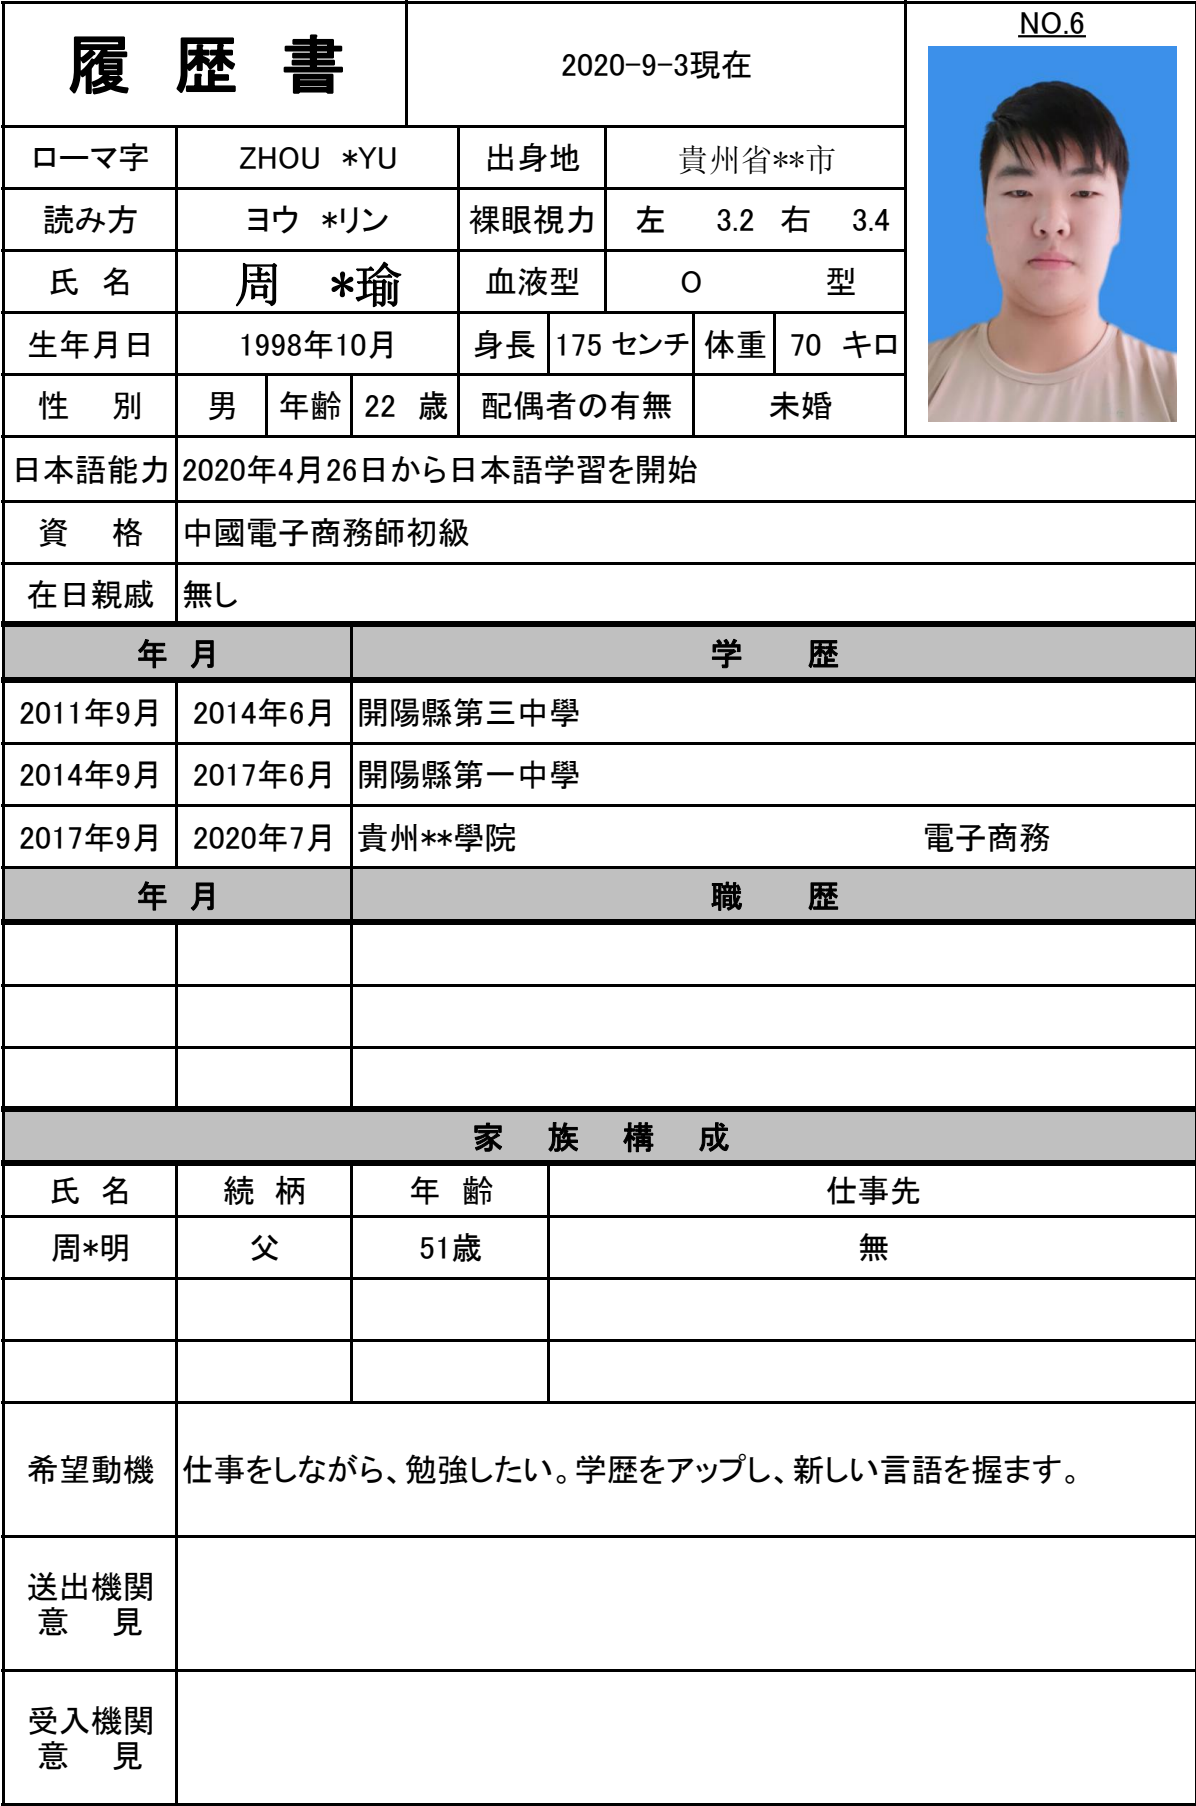 NO.6
履 歴 書 2020-9-3現在
ローマ字 ZHOU *YU 出身地 貴州省**市
読み方 ヨウ *リン 裸眼視力 左 3.2 右 3.4
氏 名 周 *瑜 血液型 O 型
生年月日 1998年10月 身長 175 センチ 体重 70 キロ
性 別 男 年齢 22 歳 配偶者の有無 未婚
日本語能力 2020年4月26日から日本語学習を開始
資 格 中國電子商務師初級
在日親戚 無し
年 月 学 歴
2011年9月 2014年6月 開陽縣第三中學
2014年9月 2017年6月 開陽縣第一中學
2017年9月 2020年7月 貴州**學院 電子商務
年 月 職 歴
家 族 構 成
氏 名 続 柄 年 齢 仕事先
周*明 父 51歳 無
希望動機 仕事をしながら、勉強したい。学歴をアップし、新しい言語を握ます。
送出機関
意 見
受入機関
意 見